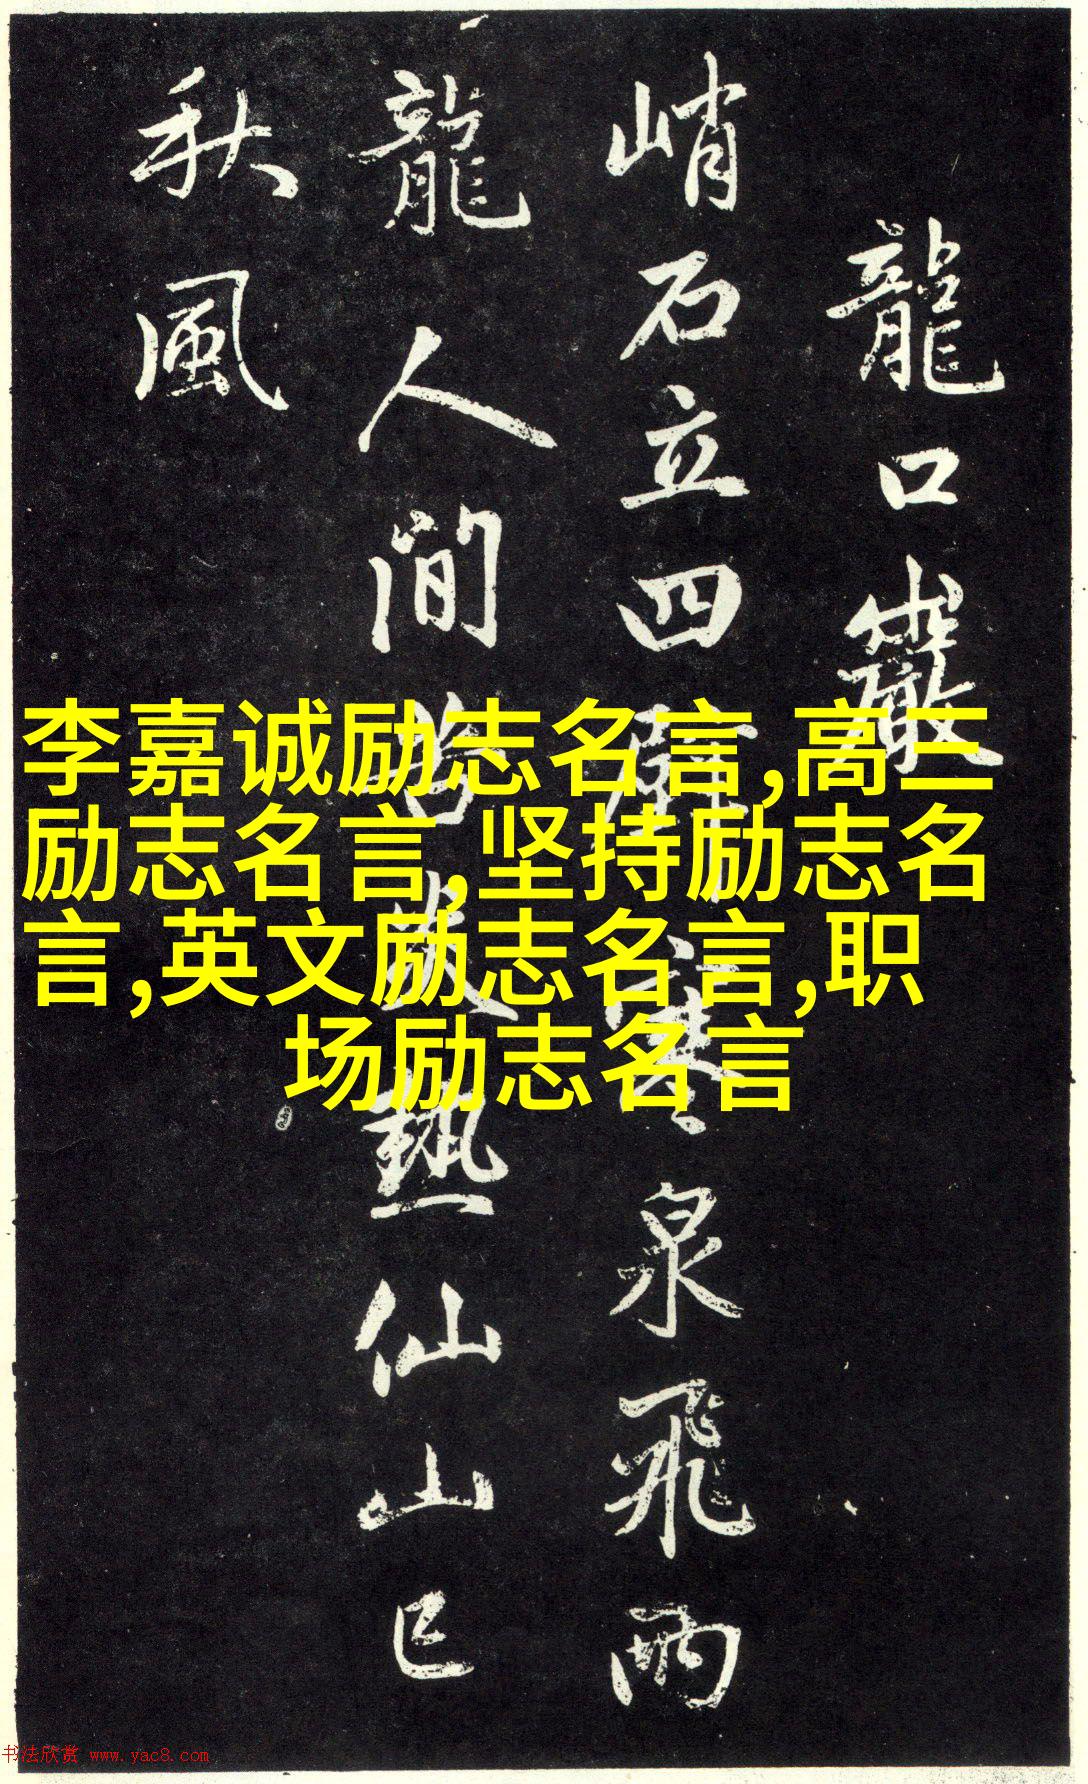 龍口巖
峭石立四壁寒泉飛雨
龍人間苦炎熱仙山已
秋風
李嘉诚励志名言,高三
励志名言,坚持励志名
言,英文励志名言,职
场励志名言
书法欣赏 www.yac8.com